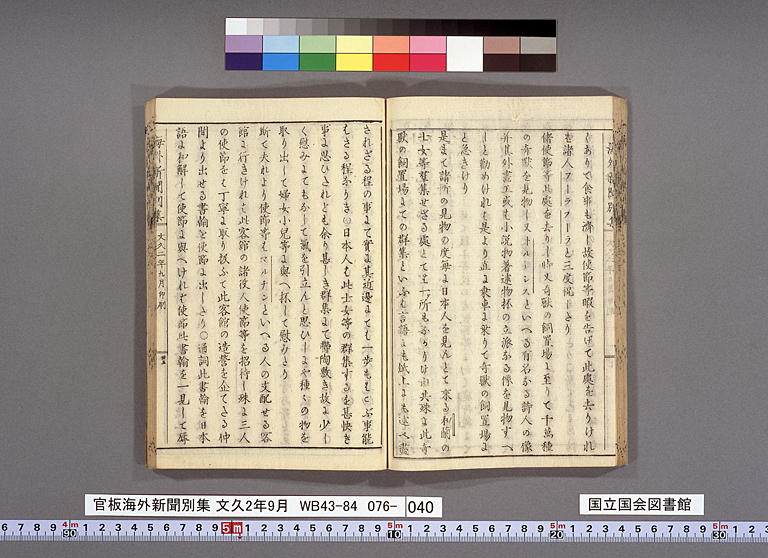 くありて食事も濟し故使節等暇を告げて此處を去りけれ
は諸人フーラフーラと三度祝しけり
偖使節等此處を去りし時又奇獸の飼置場に至りて千萬種
の奇獸を見物し又トルレンスといへる有名なる詩人の像
并其外畫工或は小説物著述物抔の立派なる像を見物すへ
しと勸めけれは是より直に乘車に乘りて奇獸の飼置場に
と急きけり
是まて諸所の見物の度毎に日本人を見んとて來る和蘭の
士女等群集せざる處とては一所もなかりけれ共殊に此奇
獸の飼置場まての群集といふは言語にも紙上にも述へ盡
されざる程の事にて實に其近邊まても一歩もはこぶ事能
はさる程なりき○日本人も此士女等の群集するを甚快き
事に思ひされども余り甚しき群集にて鬱陶敷き故に少し
く慰みまてもかして氣を引立んと思ひしにや種々の物を
取り出して婦女小兒等に與へ抔して慰みけり
斯て夫れより使節等はマルチンといへる人の支配せる客
館に行きけれは此客館の諸役人使節等を招待し殊に三人
の使節をば丁寧に取り扱ふて此客館の造營を企てたる仲
間より出せる書翰を使節に出しけり○通詞此書翰を日本
語に和解して使節に與へけれは使節此書翰を一見して厚
海外新聞別集 文久二年九月印刷
官板海外新聞別集 文久2年9月 WB43-84 076- 040
国立国会図書館